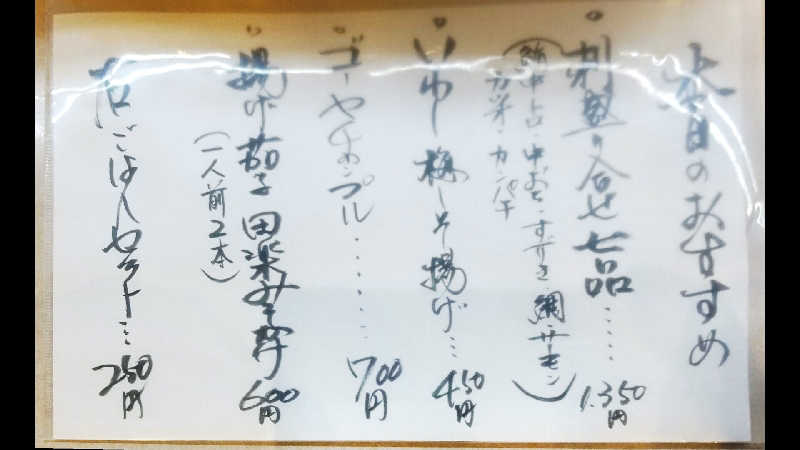 本日のおすすめ
刺身盛り合せ 七品…… 1.350円
中おち・すずき・鯛・サーモン)
カンパチ
いわし梅しそ揚げ… 450円
ゴーヤチャンプル……… 700円
揚げ茄子田楽みそかけ 600円
(一人前2本)
ごはんセット… 250円